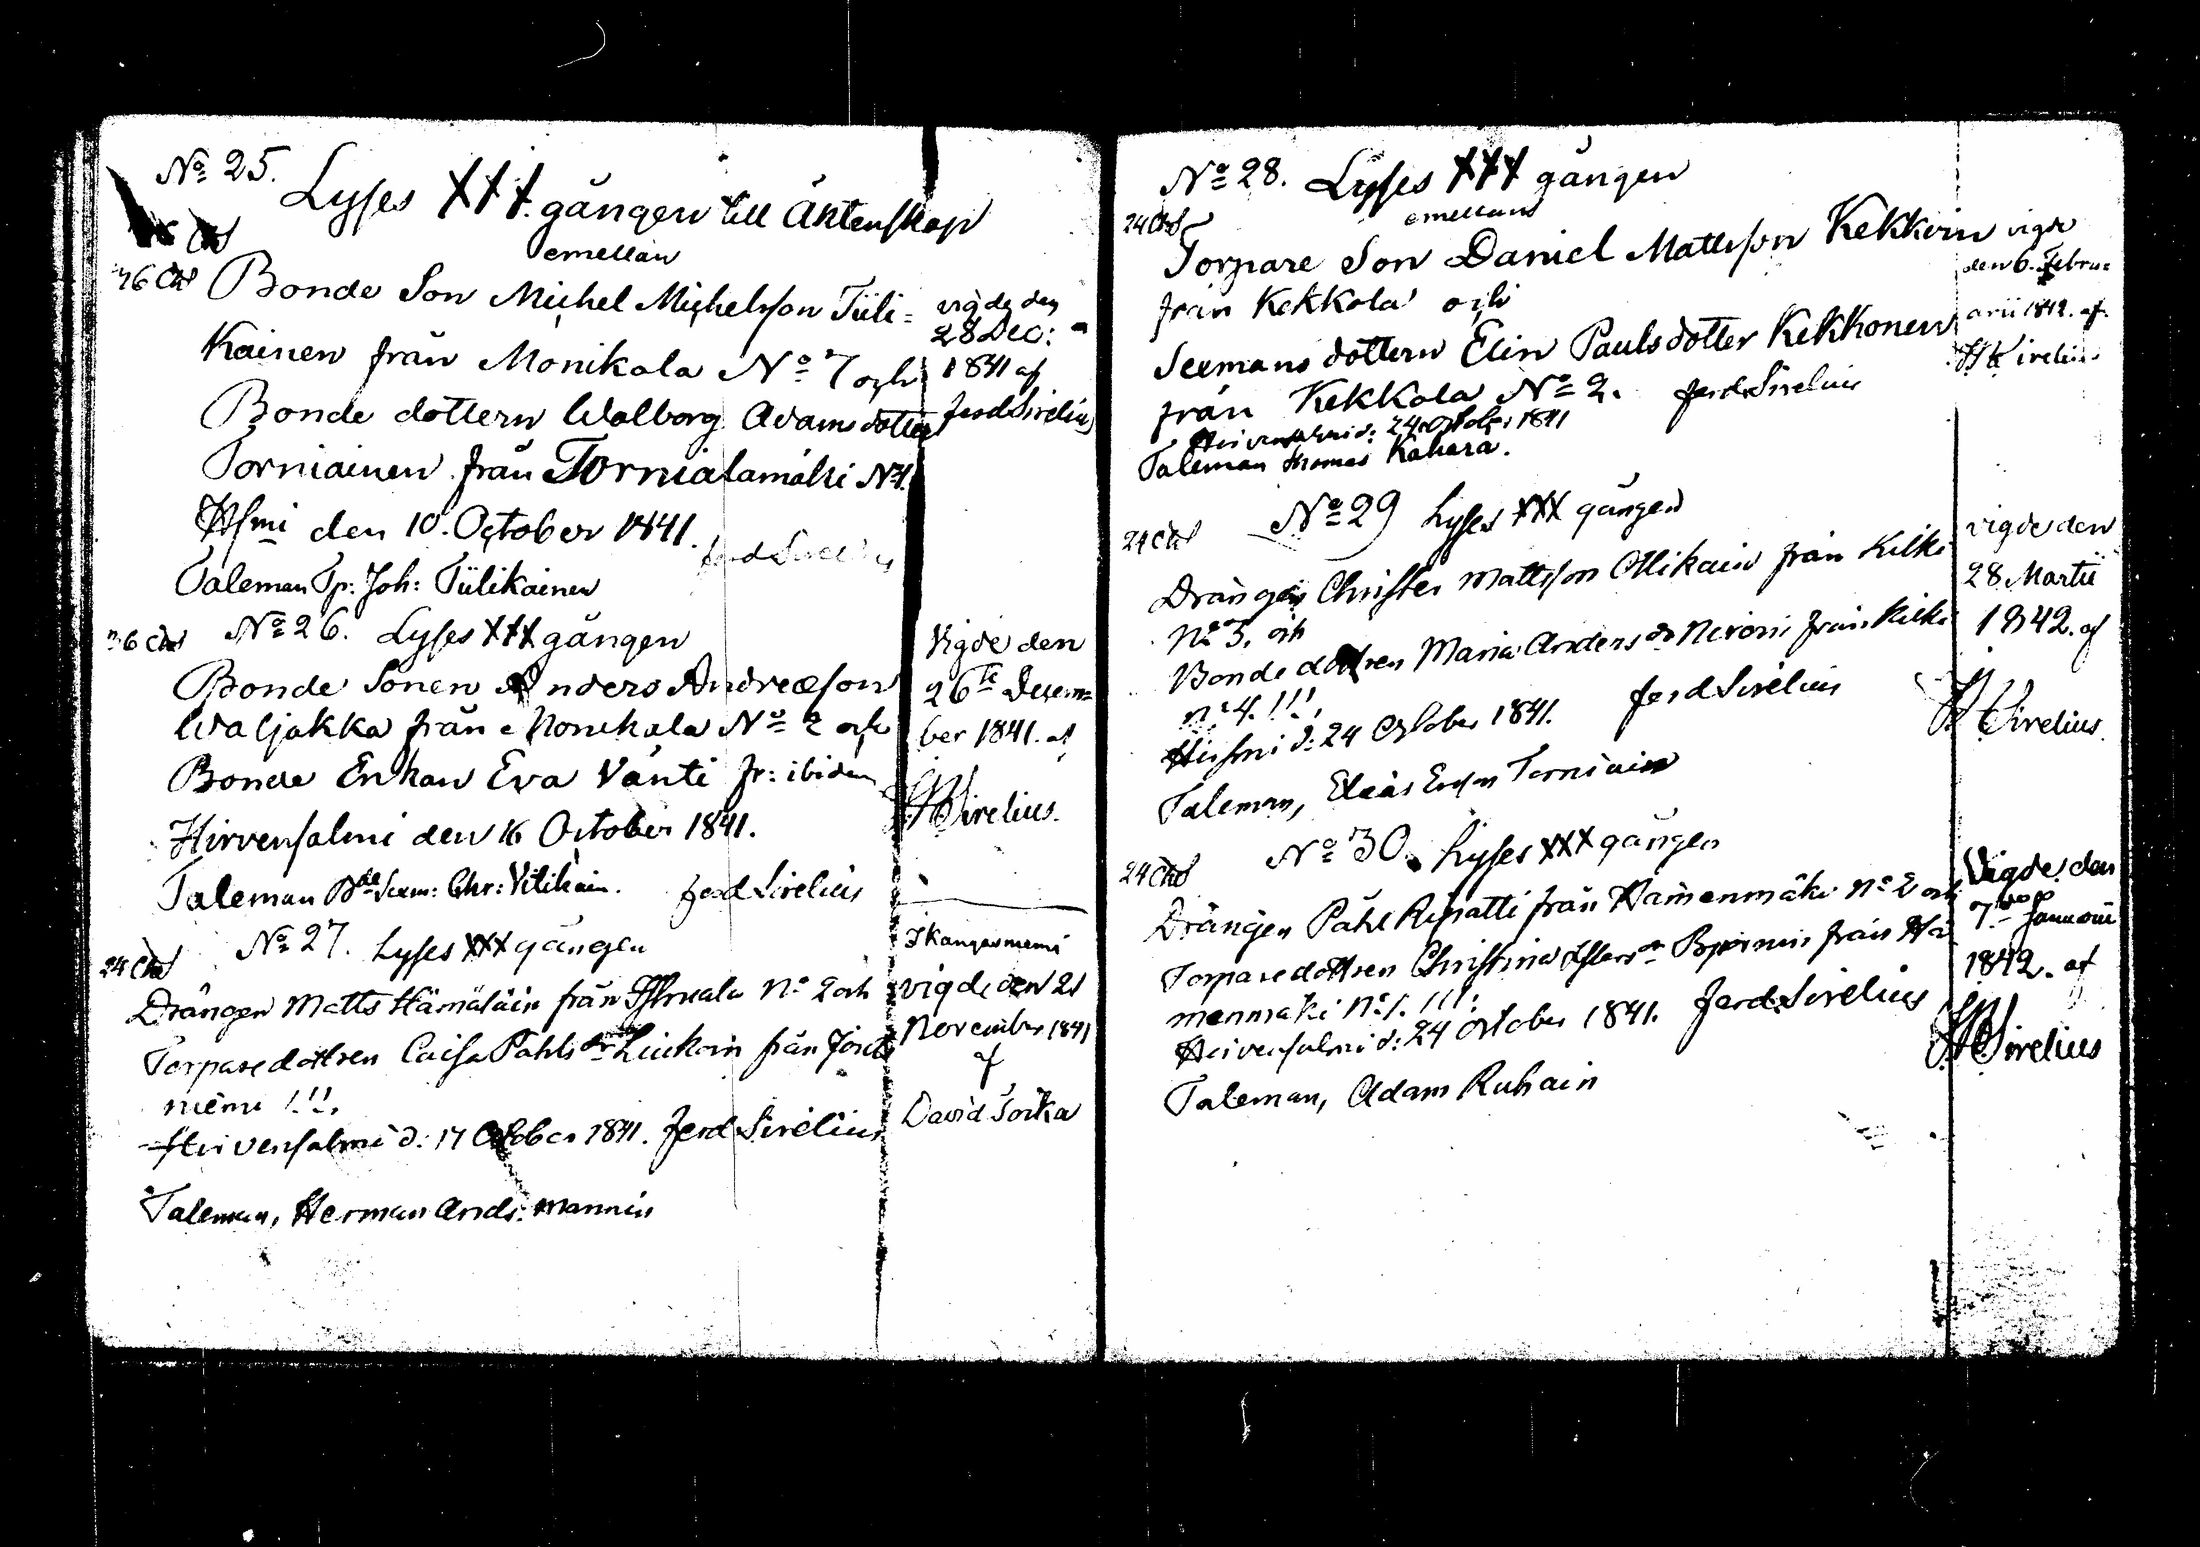 No 25.
Lyses XXX. gången till Äktenskap
emellan
Bonde Son Michel Michelsson Tiili=
kainen från Monikala No 7 och
Bonde dottern Walborg Adamsdotter
Torniainen från Tornialamäki N1.
Hsmi den 10. October 1841. Ferd Sirelius
Taleman Tp: Joh: Tiilikainen
vigde den
28 Dec:
1841 af
Ferd Sirelius
No 26. Lyses XXX gången
Bonde Sonen Anders Andreæson
Waljakka från Monikala No 2 och
Bonde Enkan Eva Vänti fr: ibidem
Hirvensalmi den 16 October 1841.
Taleman Bde Sexm: Chr: Vitikain. Ferd Sirelius
Vigde den
26te Decem=
ber 1841. af
Sirelius.
No 27. Lyses XXX gången
24 Cht
Drängen Matts Hämäläin från No 2 och
Torparedottren Caisa Påhlsdr Liukoin från
niemi !!!,
Hirvensalmi d: 17 October 1841. Ferd Sirelius
Taleman, Herman Ands: Mannin
I Kangasniemi
vigde den 21
November 1841
af
David
No 28. Lyses XXX gången
emellan
24 Cht
Torpare Son Daniel Mattsson Kekkoin
från Kekkola och
Sexmans dottern Elin Paulsdotter Kekkonen
från Kekkola No 2. Ferd Sirelius
Hirvensalmi d: 24 October 1841
Taleman Thomas Kahara.
vigde
den 6. Febru=
arii 1842. af
Sirelius
No 29 Lyses XXX gången
24 Cht
Drängen Christer Mattsson Ollikain från Kilki
No 3, och
Bonde dottren Maria Anders dr Niroin från Kilki
No 4. !!!,
Hirfmi d: 24 October 1841. Ferd Sirelius
Taleman, Elias Ersson Torniain
vigde den
28 Martii
1842. af
Sirelius.
No 30. Lyses XXX gången
24 Cht
Drängen Påhl Ripatti från Hämenmäki No 2 och
Torparedottren Christina dr från Hä
menmäki No 1. !!!,
Hirvensalmi d: 24 October 1841. Ferd Sirelius
Taleman, Adam Ruhain
Vigde den
7 Januarii
1842. af
Sirelius